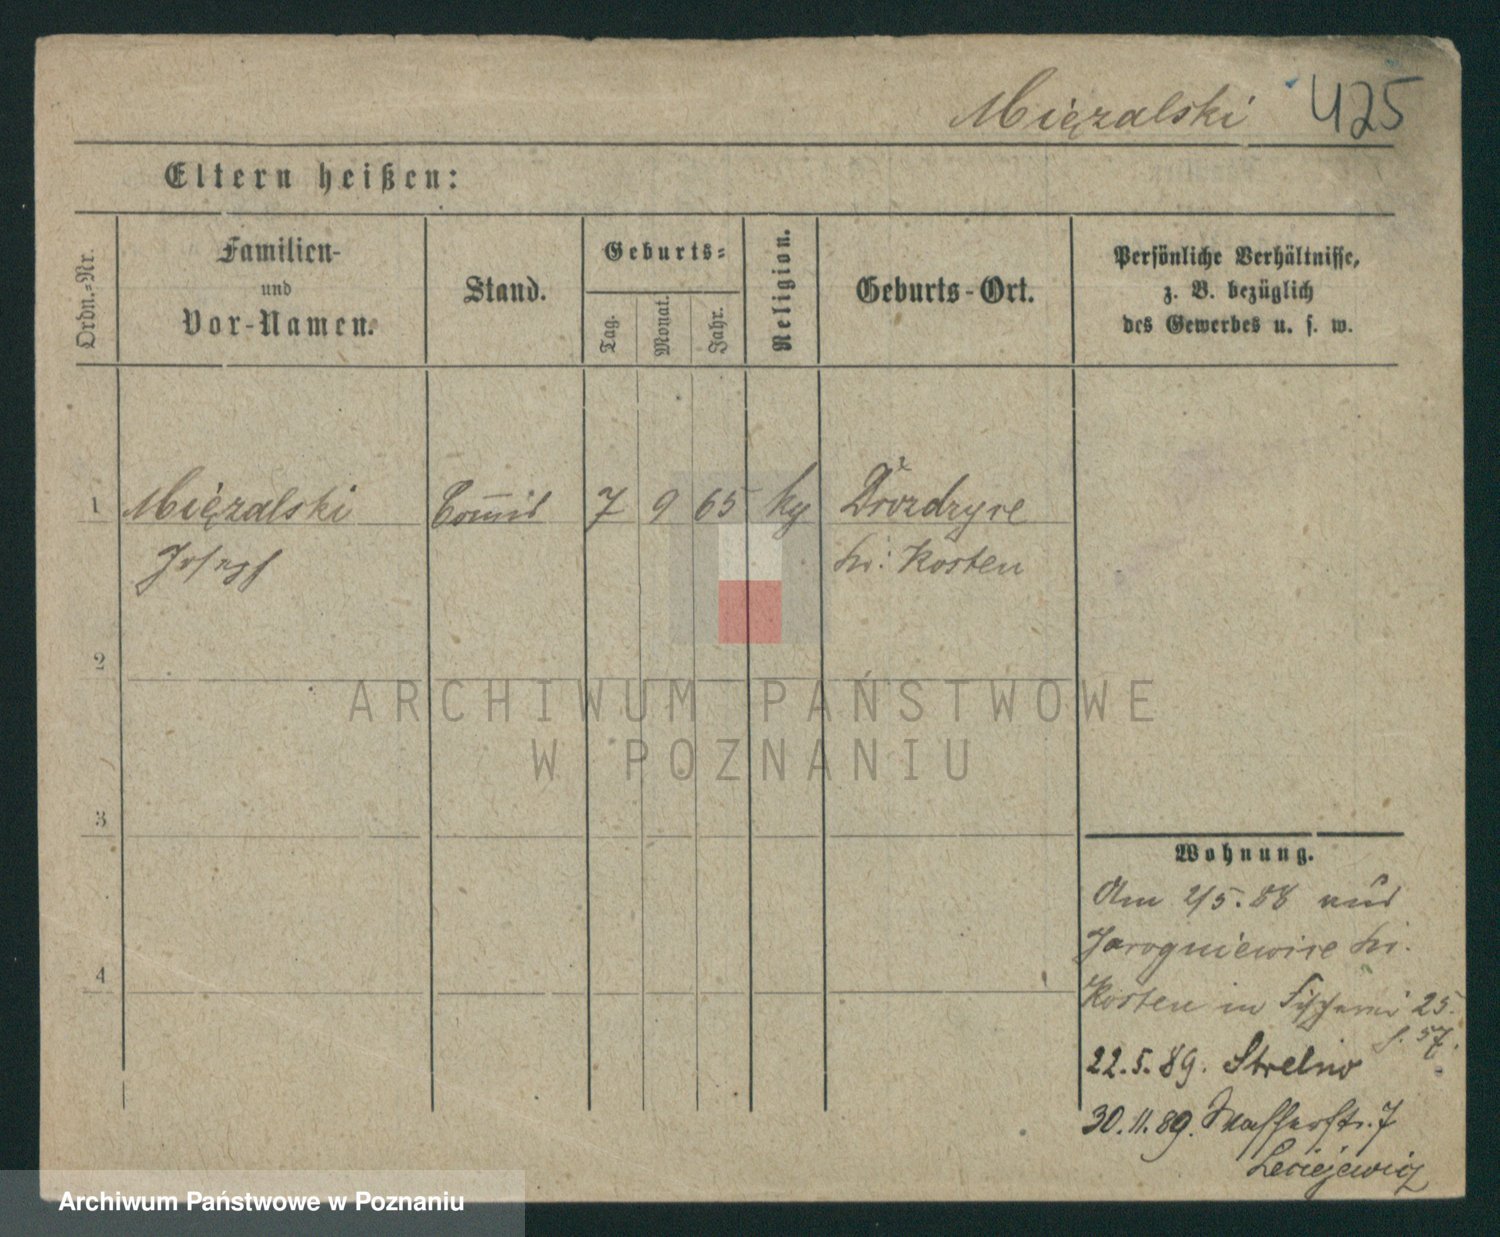 Mięzalski 425
Eltern heißen:
Ordn.-Nr.
Familien-
und
Vor-Namen.
Stand.
Geburts-
Tag.
Monat.
Jahr.
Religion.
Geburts-Ort.
Persönliche Verhältnisse,
z. B. bezüglich
des Gewerbes u. s. w.
1 Mięzalski Commis 7 9 65 kg Drozdzyce
Josef Kr: Kosten
2
3
4
Wohnung.
Am 2/5.88 aus
Jarogniewice Kr.
Kosten in Fischerei 25.
S. 57.
22.5.89. Strelno
30.11.89. Wasserstr. 7
Leciejewicz
ARCHIWUM PAŃSTWOWE
W POZNANIU
Archiwum Państwowe w Poznaniu